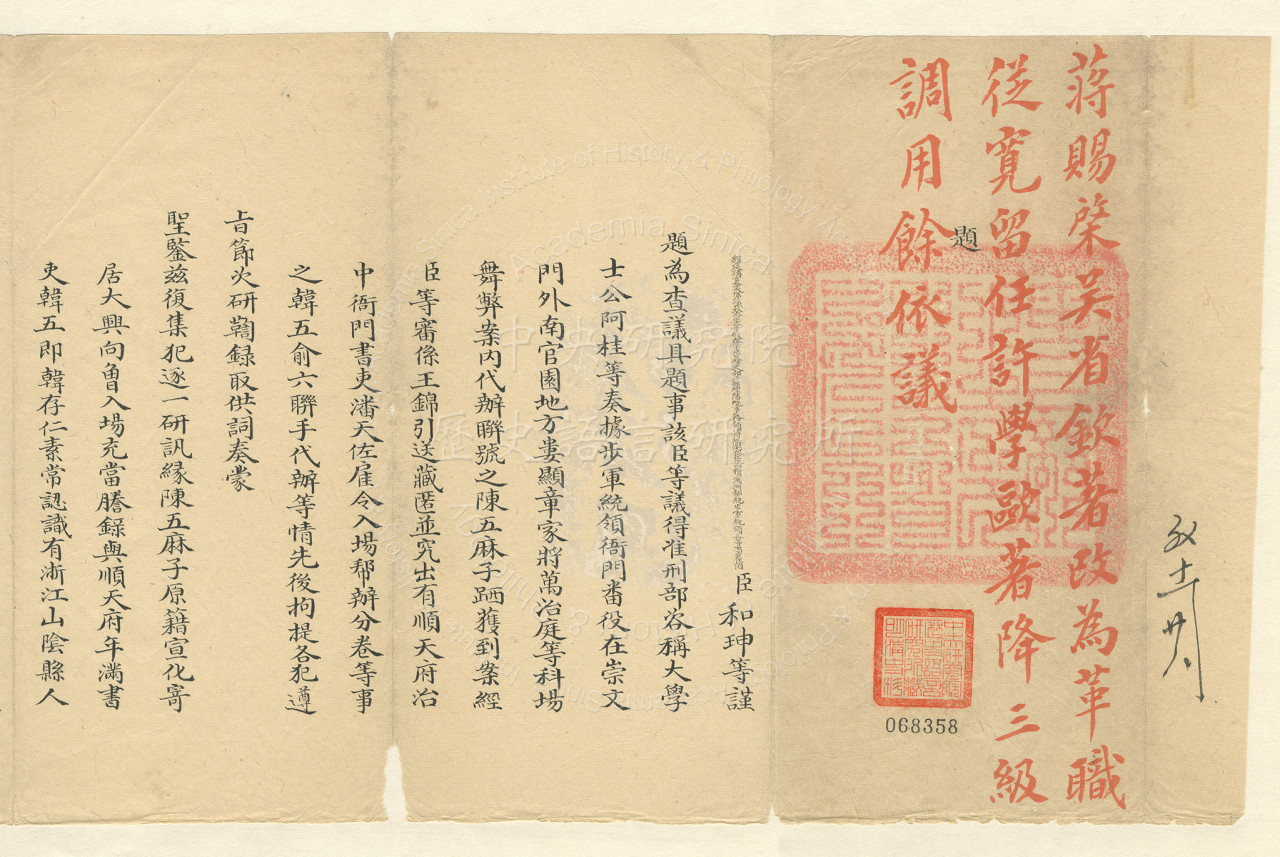 蔣賜棨吳省欽著改為革職
從寬留任許學歐著降三級
調用餘依議
題
臣和珅等謹
題為查議具題事該臣等議得准刑部咨稱大學
士公阿桂等奏據步軍統領衙門畨役在崇文
門外南官園地方婁顯章家將萬治庭等科場
舞弊案內代辦聯號之陳五麻子跴獲到案經
臣等審係王錦引送藏匿並究出有順天府治
中衙門書吏潘天佐雇令入場帮辦分卷等事
之韓五俞六聯手代辦等情先後拘提各犯遵
旨節次研鞫錄取供詞奏蒙
聖鑒茲復集犯逐一研訊緣陳五麻子原籍宣化寄
居大興向曾入場充當謄錄與順天府年滿書
吏韓五即韓存仁素常認識有浙江山陰縣人
068358
中央研究院
歷史語言研究所
Institute of History & Philology
Academia Sinica